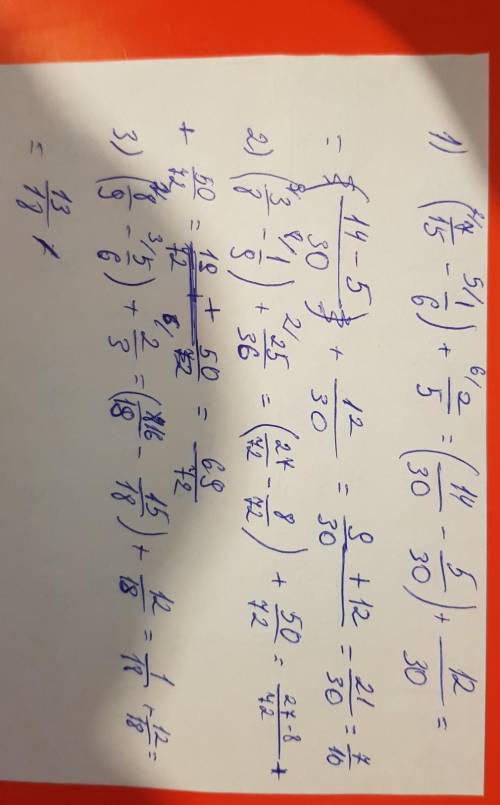 1) (²⁄7/15 - ⁵⁄1/6) + ⁶⁄2/5 = (14/30 - 5/30) + 12/30 =
= (14-5/30) + 12/30 = 9+12/30 = 21/30 = 7/10
2) (⁹⁄3/8 - ⁸⁄1/9) + ²⁄25/36 = (27/72 - 8/72) + 50/72 = 27-8/72 +
+ 50/72 = 19/72 + 50/72 = 69/72
3) (²⁄8/9 - ³⁄5/6) + ⁶⁄2/3 = (16/18 - 15/18) + 12/18 = 1/18 + 12/18 =
= 13/18